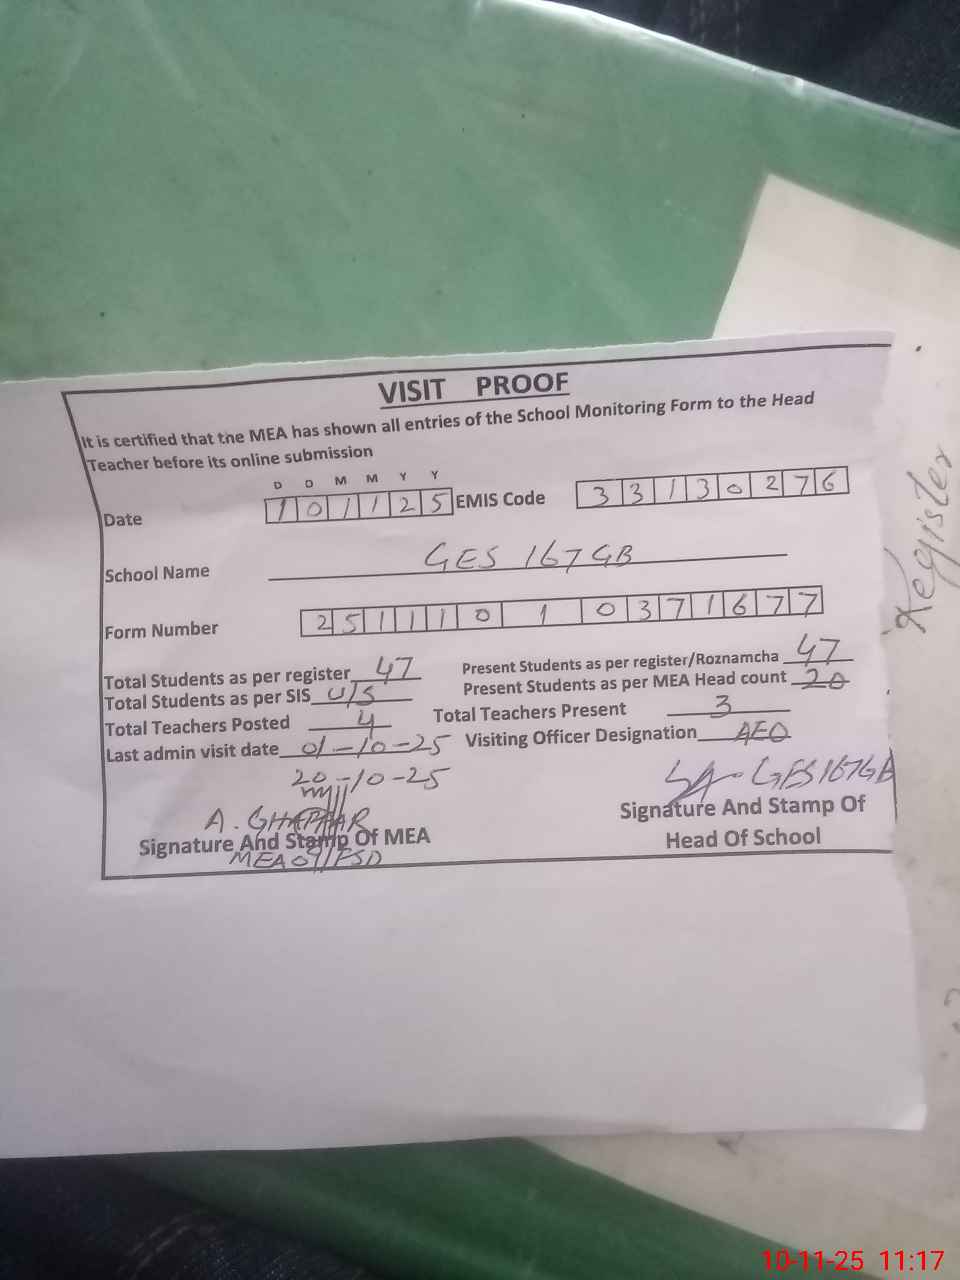 VISIT PROOF
It is certified that the MEA has shown all entries of the School Monitoring Form to the Head
Teacher before its online submission
D D M M Y Y
Date 1 0 1 1 2 5 EMIS Code 3 3 1 3 0 2 7 6
School Name GES 167 GB
Form Number 2 5 1 1 1 0 1 0 3 7 1 6 7 7
Total Students as per register 47 Present Students as per register/Roznamcha 47
Total Students as per SIS U/S Present Students as per MEA Head count 20
Total Teachers Posted 4 Total Teachers Present 3
Last admin visit date 01-10-25 Visiting Officer Designation AEO
20-10-25
GES 167 GB
A. GHAFFAR
Signature And Stamp Of MEA Signature And Stamp Of
MEA 09/FSD Head Of School
Register
10-11-25 11:17